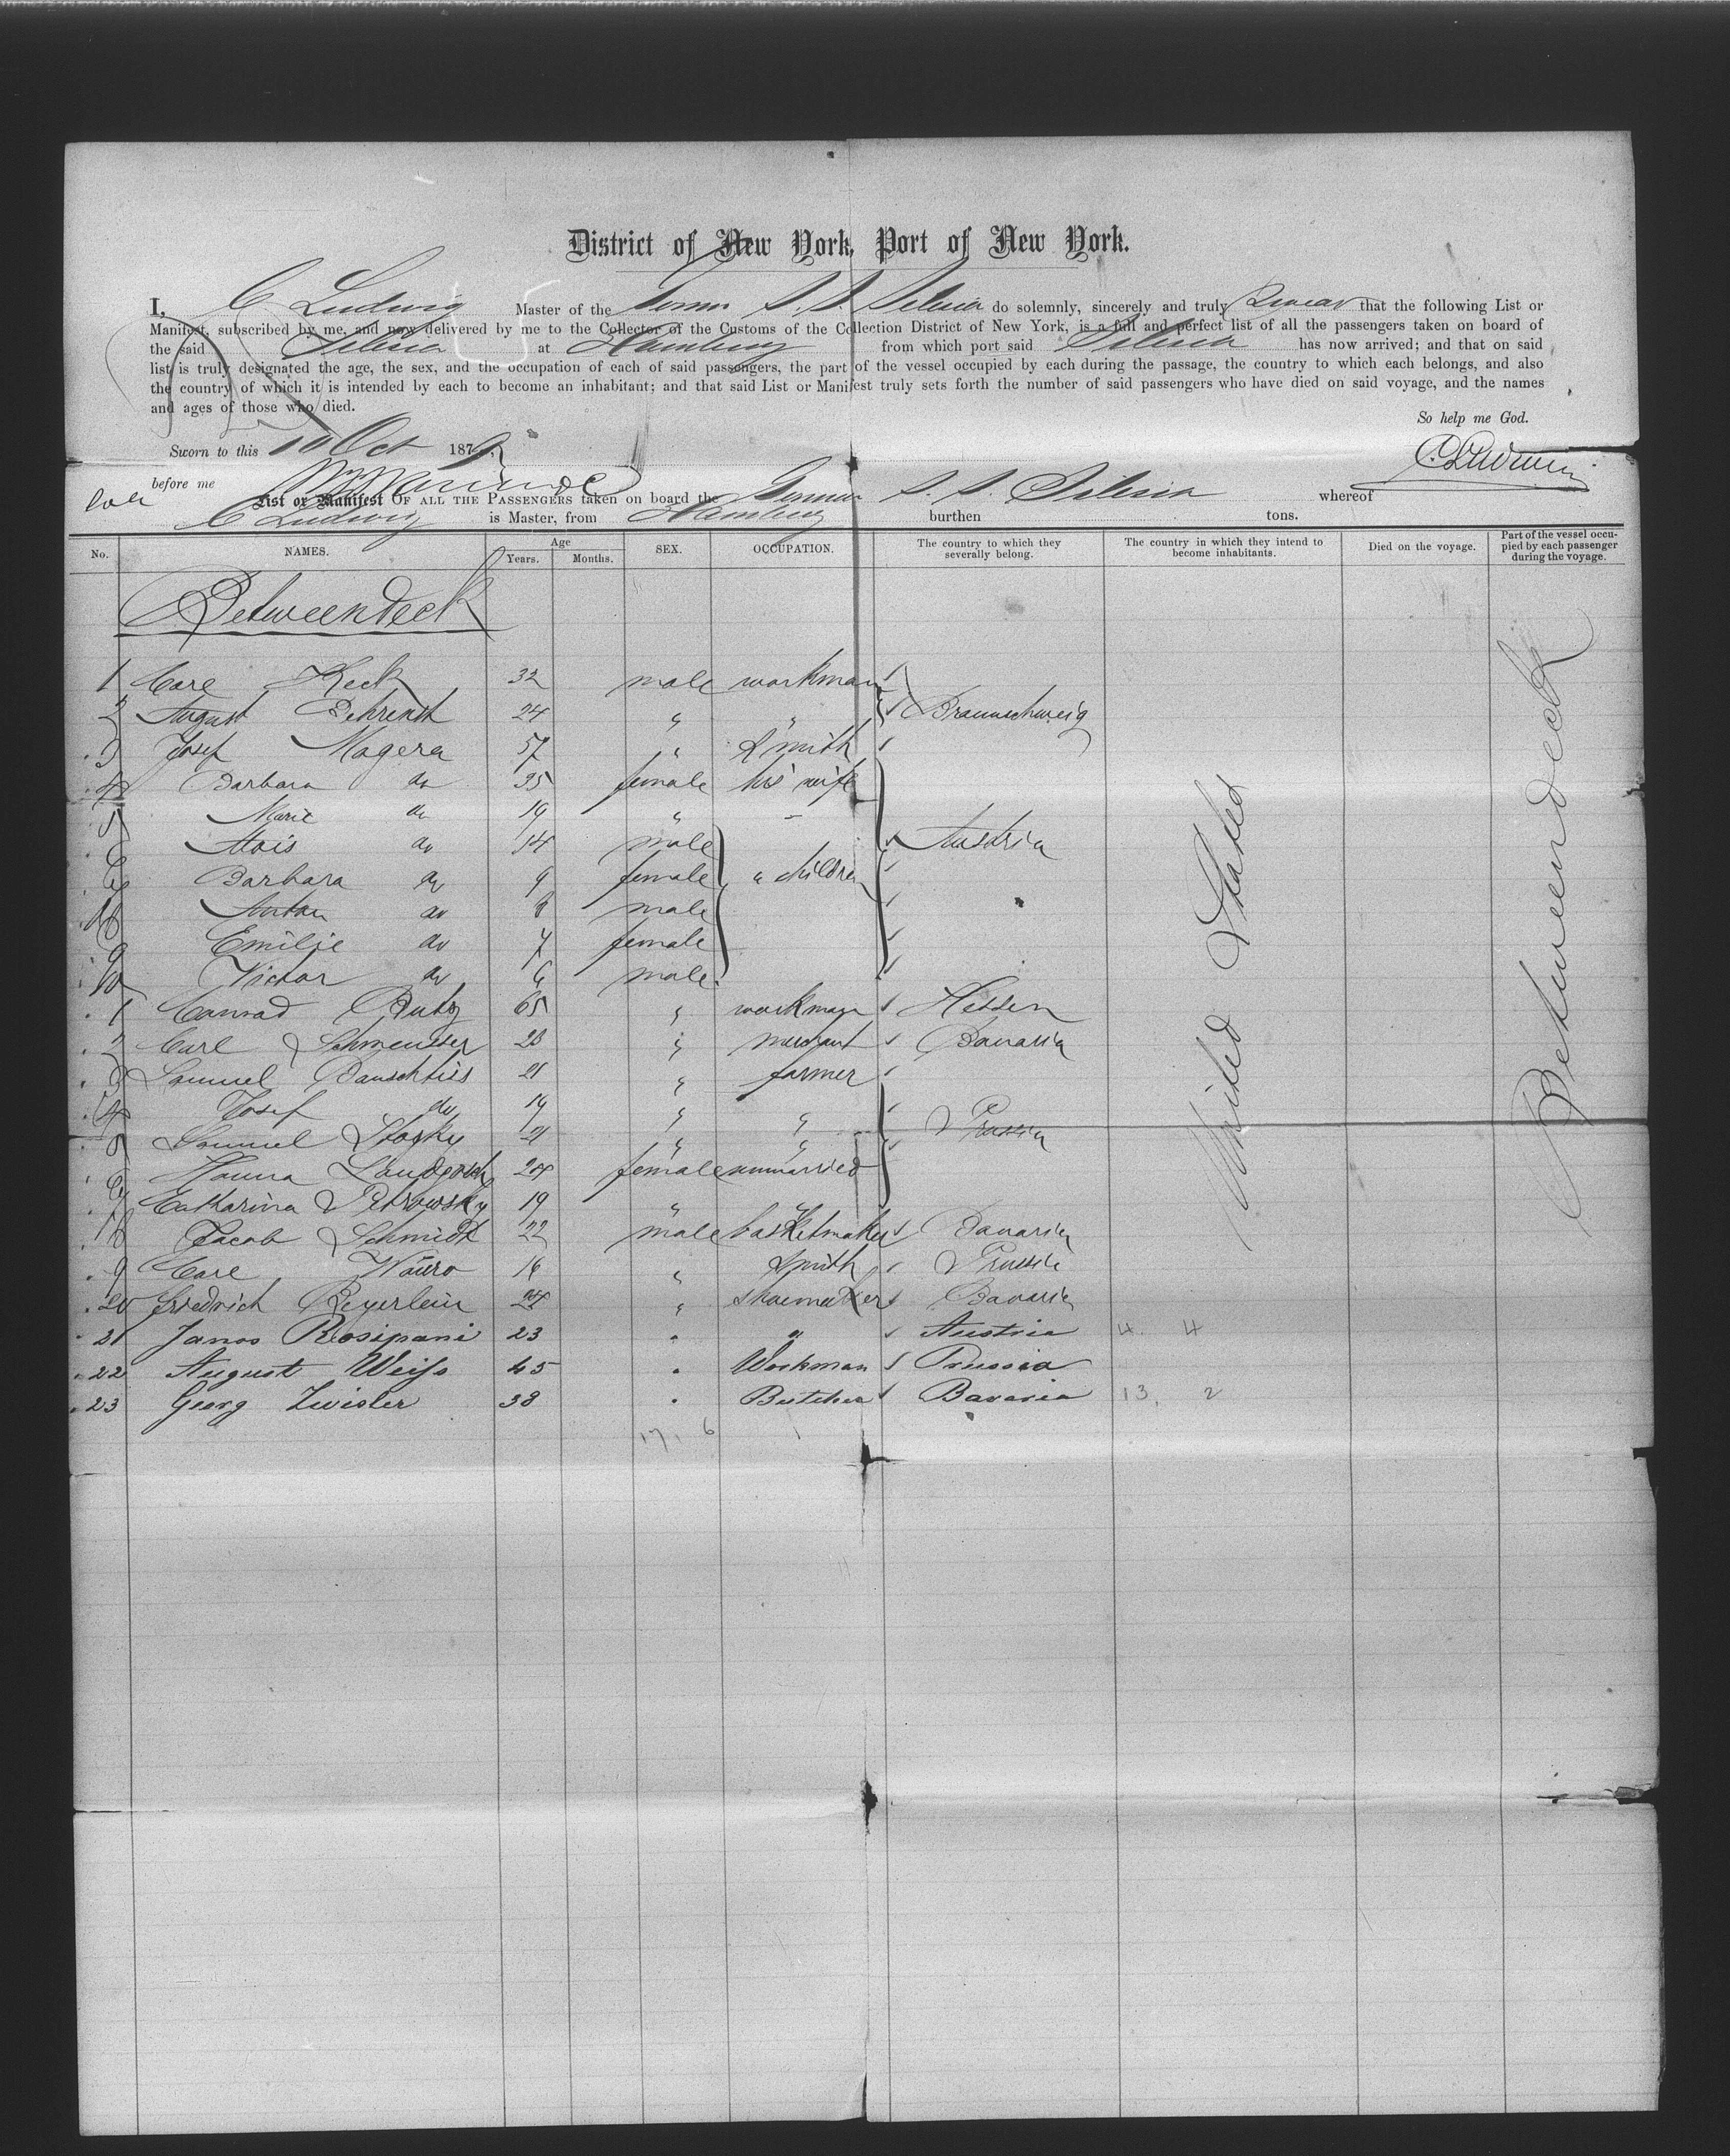 District of New York, Port of New York.
I, C Ludwig Master of the German S. S. Silesia do solemnly, sincerely and truly Swear that the following List or
Manifest, subscribed by me, and now delivered by me to the Collector of the Customs of the Collection District of New York, is a full and perfect list of all the passengers taken on board of
the said Silesia at Hamburg from which port said Silesia has now arrived; and that on said
list is truly designated the age, the sex, and the occupation of each of said passengers, the part of the vessel occupied by each during the passage, the country to which each belongs, and also
the country of which it is intended by each to become an inhabitant; and that said List or Manifest truly sets forth the number of said passengers who have died on said voyage, and the names
and ages of those who died.
So help me God.
Sworn to this 10 Oct 187
C. Ludwig
before me
List or Manifest OF ALL THE PASSENGERS taken on board the German S. S. Silesia whereof
C Ludwig is Master, from Hamburg burthen tons.
No. NAMES. Age Years. Months. SEX. OCCUPATION. The country to which they severally belong. The country in which they intend to become inhabitants. Died on the voyage. Part of the vessel occupied by each passenger during the voyage.
Betweendeck
1 Carl Keck 32 male workman
2 August Behrendt 24 " " Braunschweig
3 Josef Magera 57 " Smith
4 Barbara do 35 female his wife
5 Marie do 19 " -
6 Alois do 14 male Austria
7 Barbara do 9 female " children
8 Anton do 8 male
9 Emilie do 7 female
10 Victor do 6 male
1 Conrad Butz 65 " workman Hessen
2 Carl Schmeusser 23 " merchant Bavaria
3 Samuel Bauschties 21 " farmer
4 Josef do 19 " " Prussia
5 Samuel Stosky 21 " "
6 Hanna 24 female unmarried
7 Catharina Petrowsky 19 " "
18 Jacob Schmidt 22 male basketmaker Bavaria
9 Carl 16 " Smith Prussia
20 Friedrich Beyerlein 24 " shoemaker Bavaria
21 Janos Rosipani 23 " " Austria 4. 4
22 August Weiss 45 " Workman Prussia
23 Georg Zwisler 38 " Butcher Bavaria 13, 2
17, 6
United States
Betweendeck